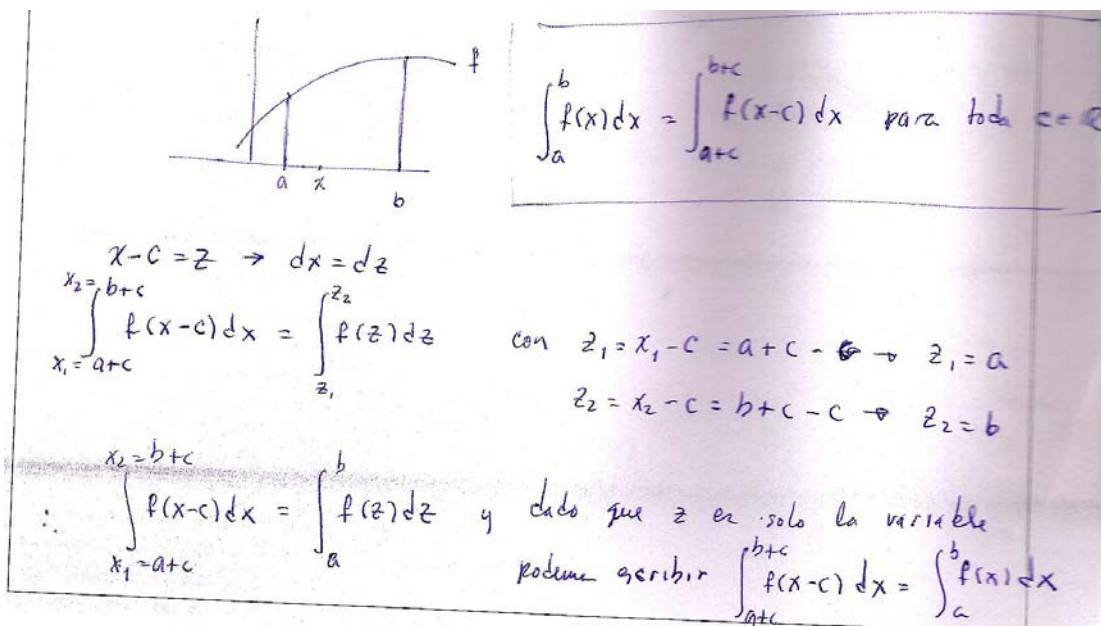 f
a x b
∫_a^b f(x)dx = ∫_{a+c}^{b+c} f(x-c) dx para toda c∈ℝ
x-c = z → dx = dz
∫_{x₁=a+c}^{x₂=b+c} f(x-c)dx = ∫_{z₁}^{z₂} f(z)dz con z₁ = x₁-c = a+c- → z₁ = a
z₂ = x₂-c = b+c-c → z₂ = b
∴ ∫_{x₁=a+c}^{x₂=b+c} f(x-c)dx = ∫_a^b f(z)dz y dado que z es solo la variable
podemos escribir ∫_{a+c}^{b+c} f(x-c) dx = ∫_a^b f(x)dx